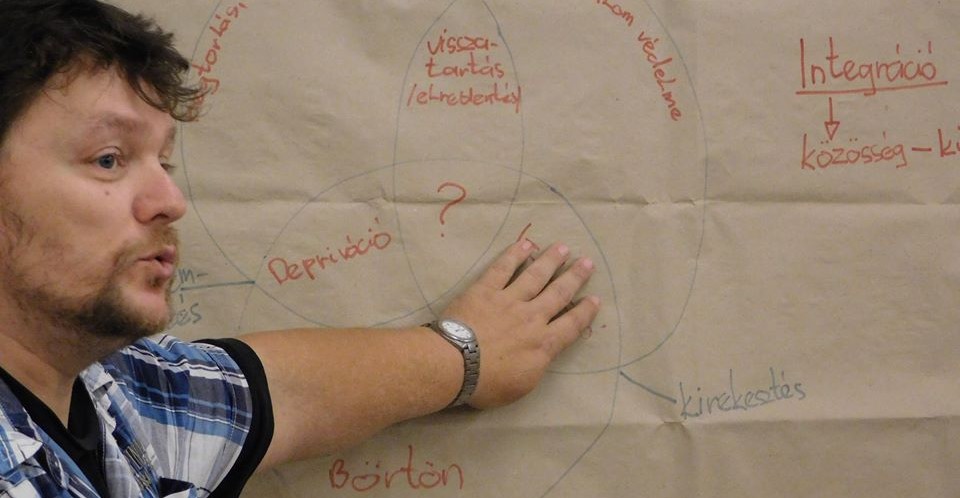 vissza-
tartás
/elrettentés/
védelme
Integráció
közösség –
?
Depriváció
kirekesztés
Börtön